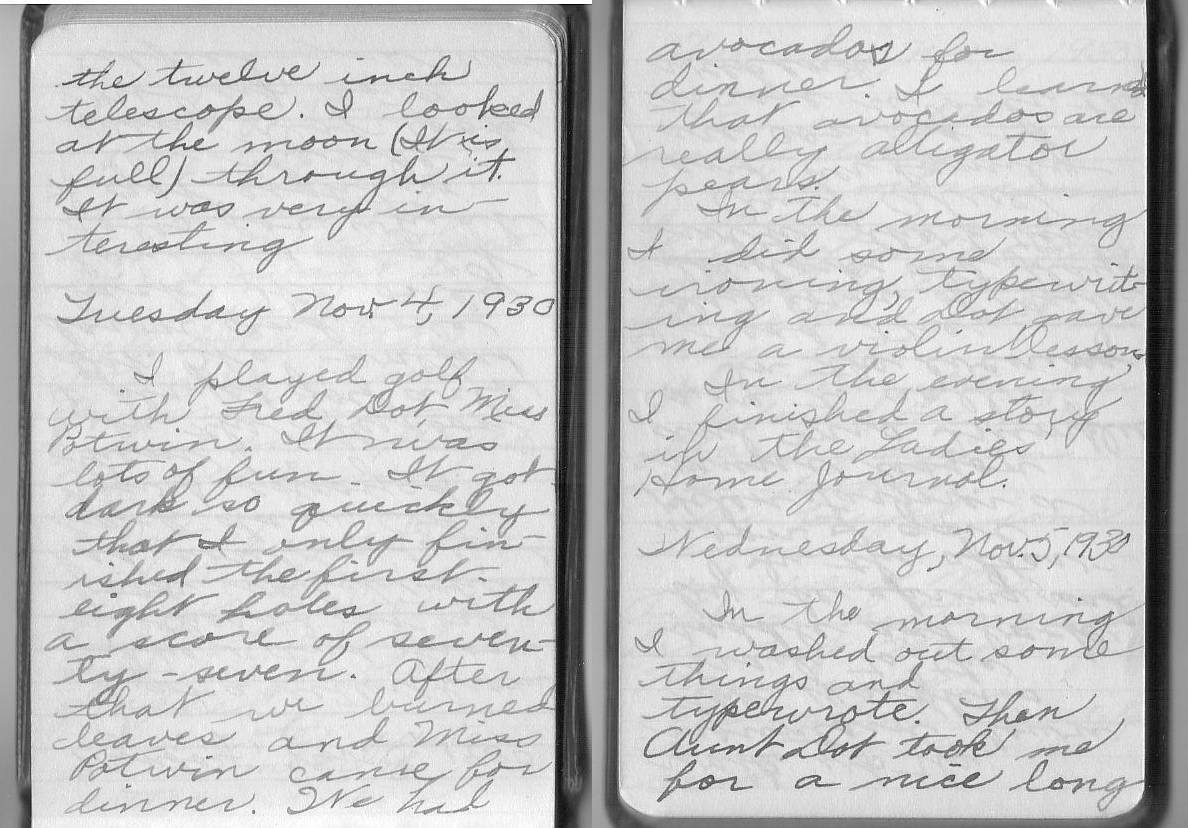 the twelve inch
telescope. I looked
at the moon (It is
full) through it.
It was very in-
teresting
Tuesday Nov. 4, 1930
I played golf
with Fred Dot Miss
Potwin. It was
lots of fun. It got
dark so quickly
that I only fin-
ished the first
eight holes with
a score of seven-
ty-seven. After
that we burned
leaves and Miss
Potwin came for
dinner. We had
avocados for
dinner. I learned
that avocados are
really alligator
pears.
In the morning
I did some
ironing, typewrit-
ing and Dot gave
me a violin lesson.
In the evening
I finished a story
in the Ladies'
Home Journal.
Wednesday, Nov. 5, 1930
In the morning
I washed out some
things and
typewrote. Then
Aunt Dot took me
for a nice long